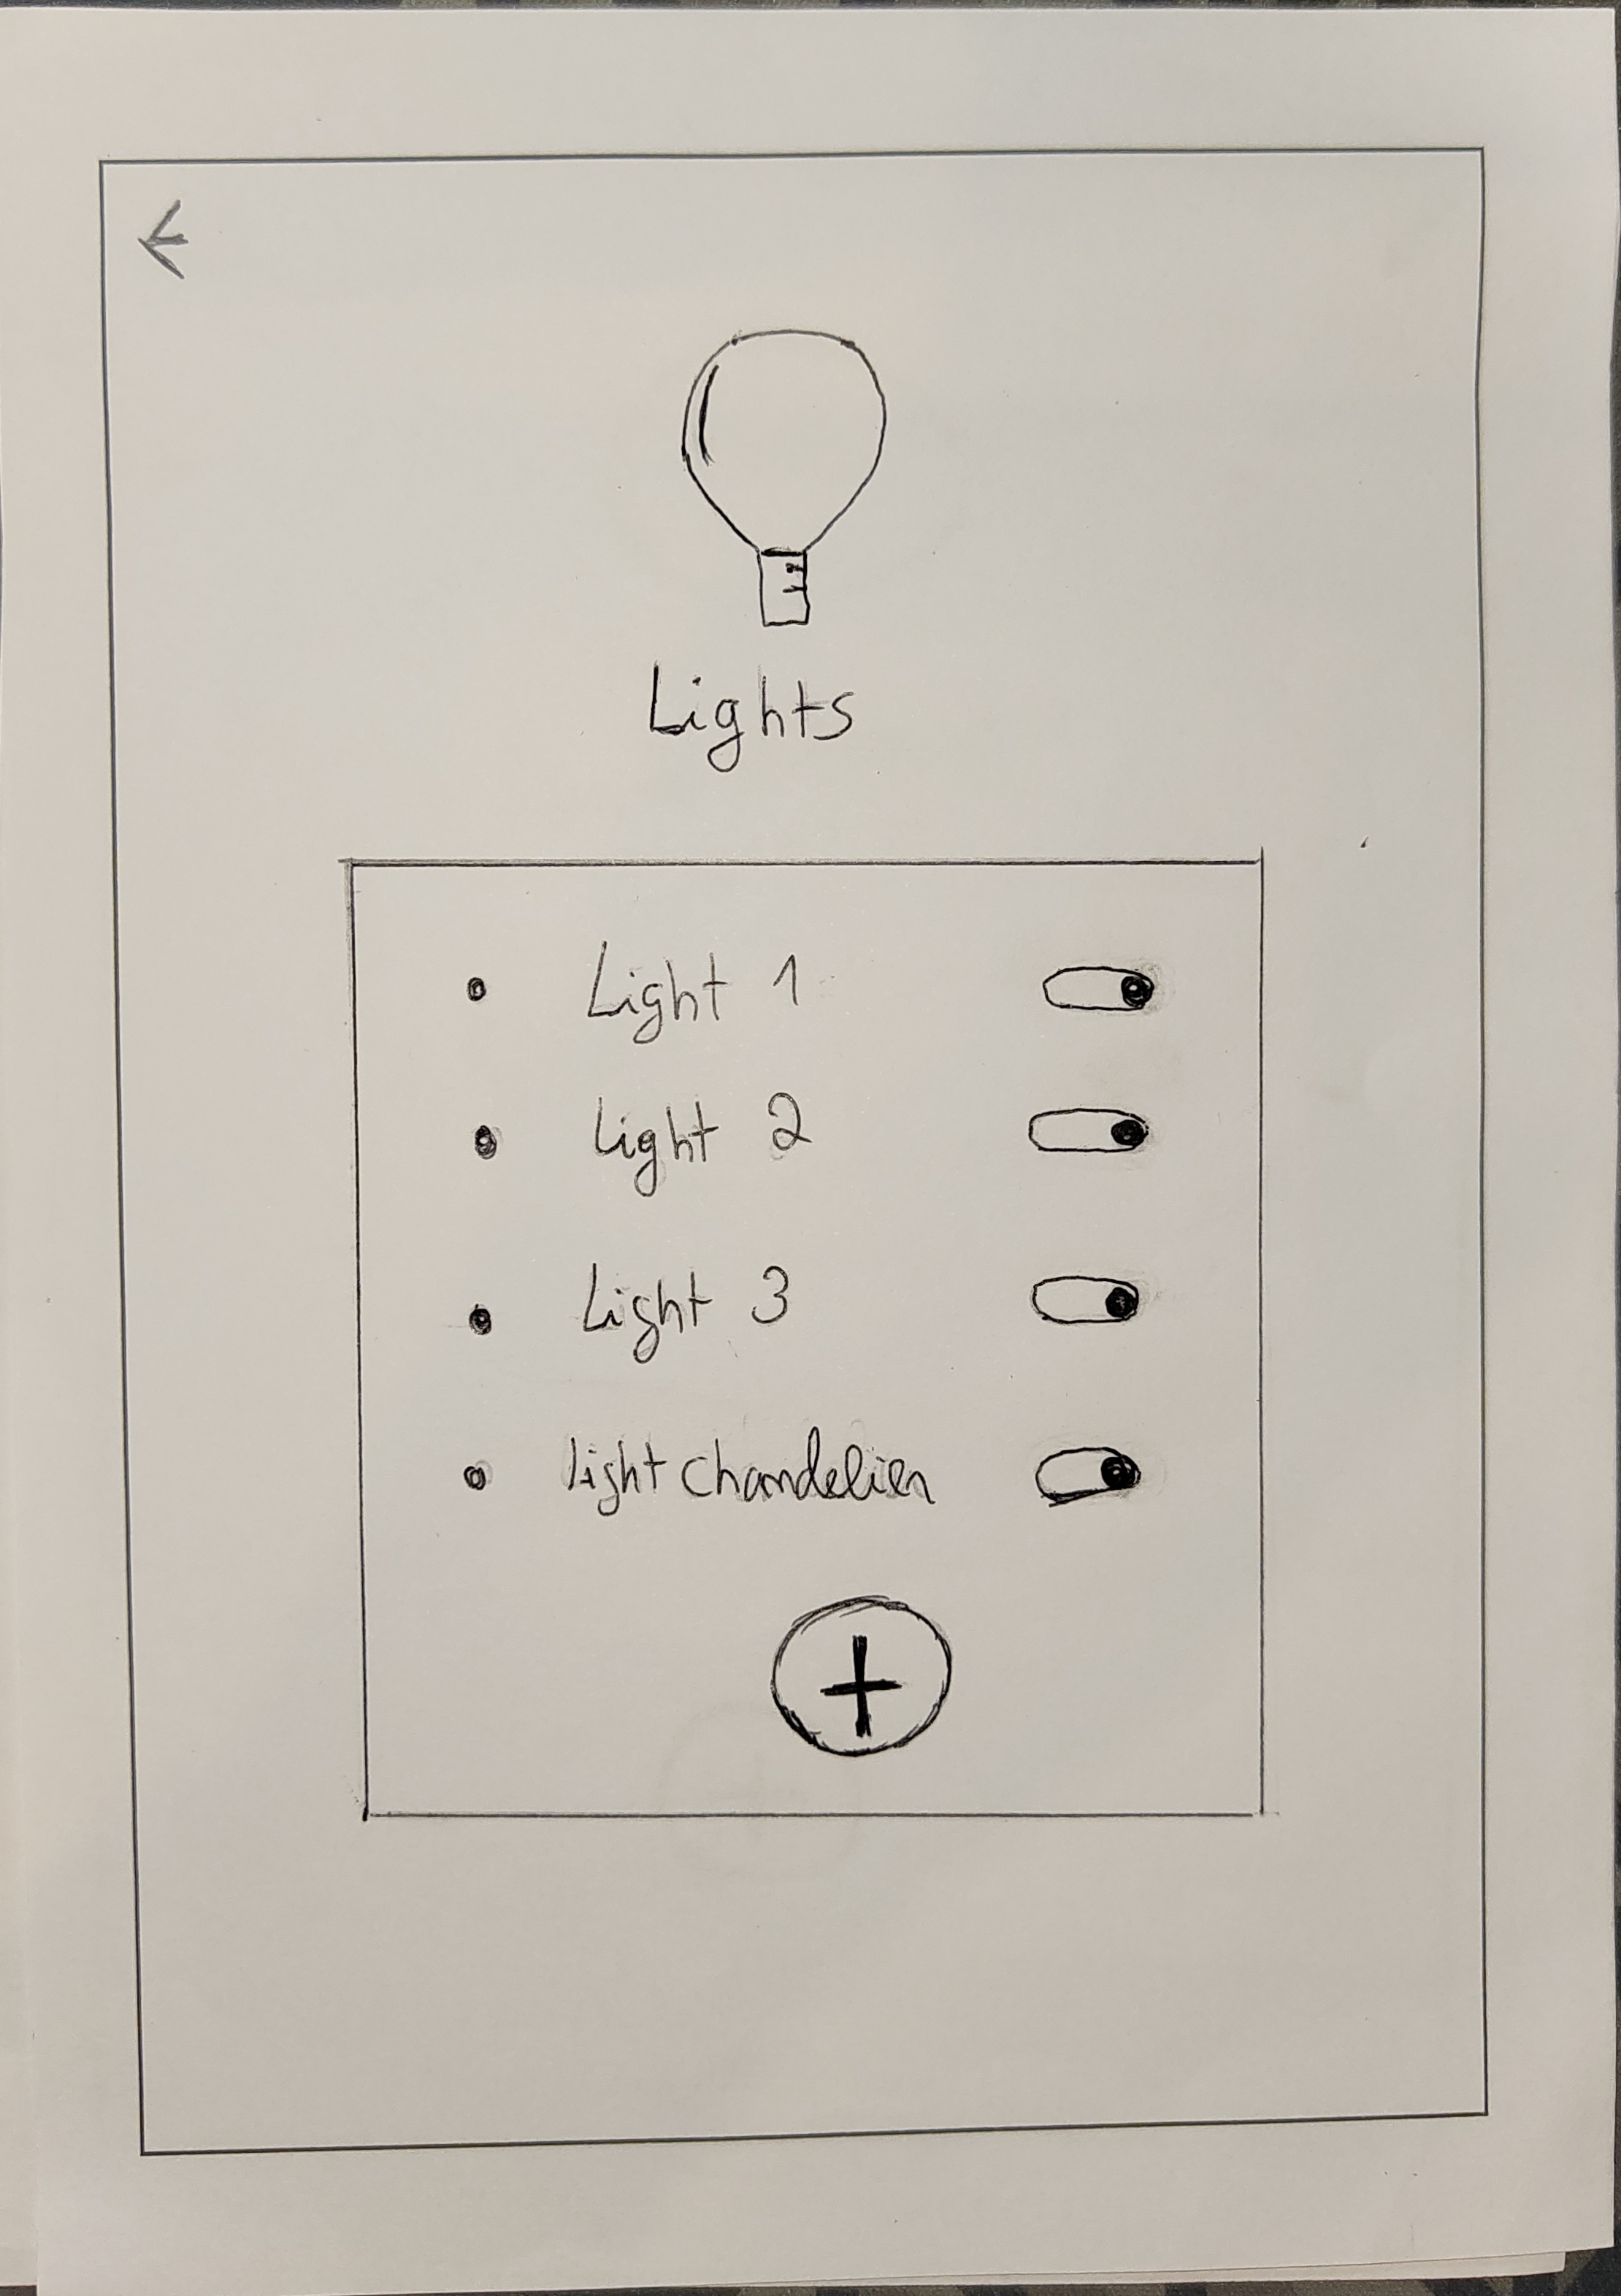 Lights
Light 1
Light 2
Light 3
light chandelier